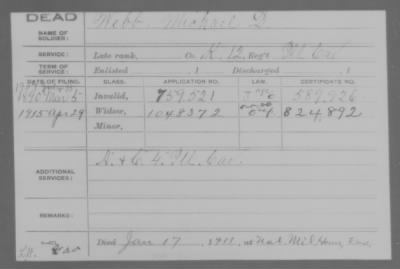 DEAD
NAME OF SOLDIER:
Webb, Michael D.
SERVICE:
Late rank, Co. K, 12 Reg't Ill Cav
TERM OF SERVICE:
Enlisted , 1 Discharged , 1
DATE OF FILING. CLASS. APPLICATION NO. LAW. CERTIFICATE NO.
1890 Mar 5 Invalid, 759,521 589,926
1915 Apr 29 Widow, 1048372 824,892
Minor,
ADDITIONAL SERVICES:
4 Ill Cav.
REMARKS:
Died Jan 17, 1911, at Nat. Mil Home,